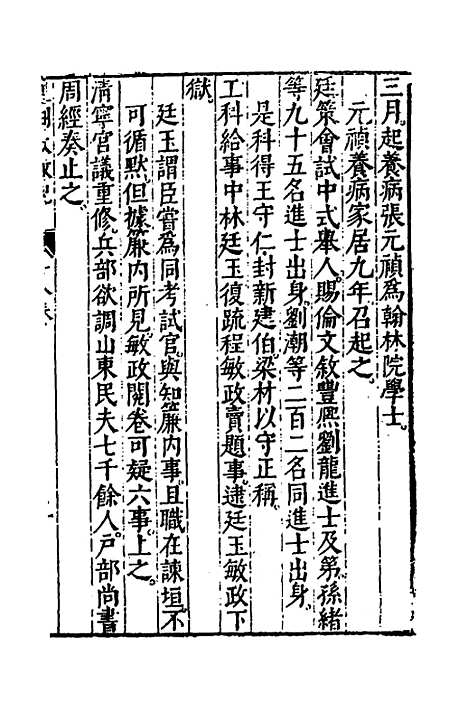 三月。起養病張元禎爲翰林院學士。
元禎養病家居九年召起之。
廷策會試中式舉人。賜倫文敘豐熙劉龍進士及第。孫緒
等九十五名進士出身。劉潮等二百二名同進士出身。
是科得王守仁封新建伯。梁材以守正稱。
工科給事中林廷玉復疏程敏政賣題事。逮廷玉敏政下
獄。
廷玉謂臣嘗爲同考試官。與知簾内事。且職在諫垣。不
可循默。但據簾内所見。敏政閱卷可疑六事。上之。
清寧宮議重修。兵部欲調山東民夫七千餘人。戸部尚書
周經奏止之。